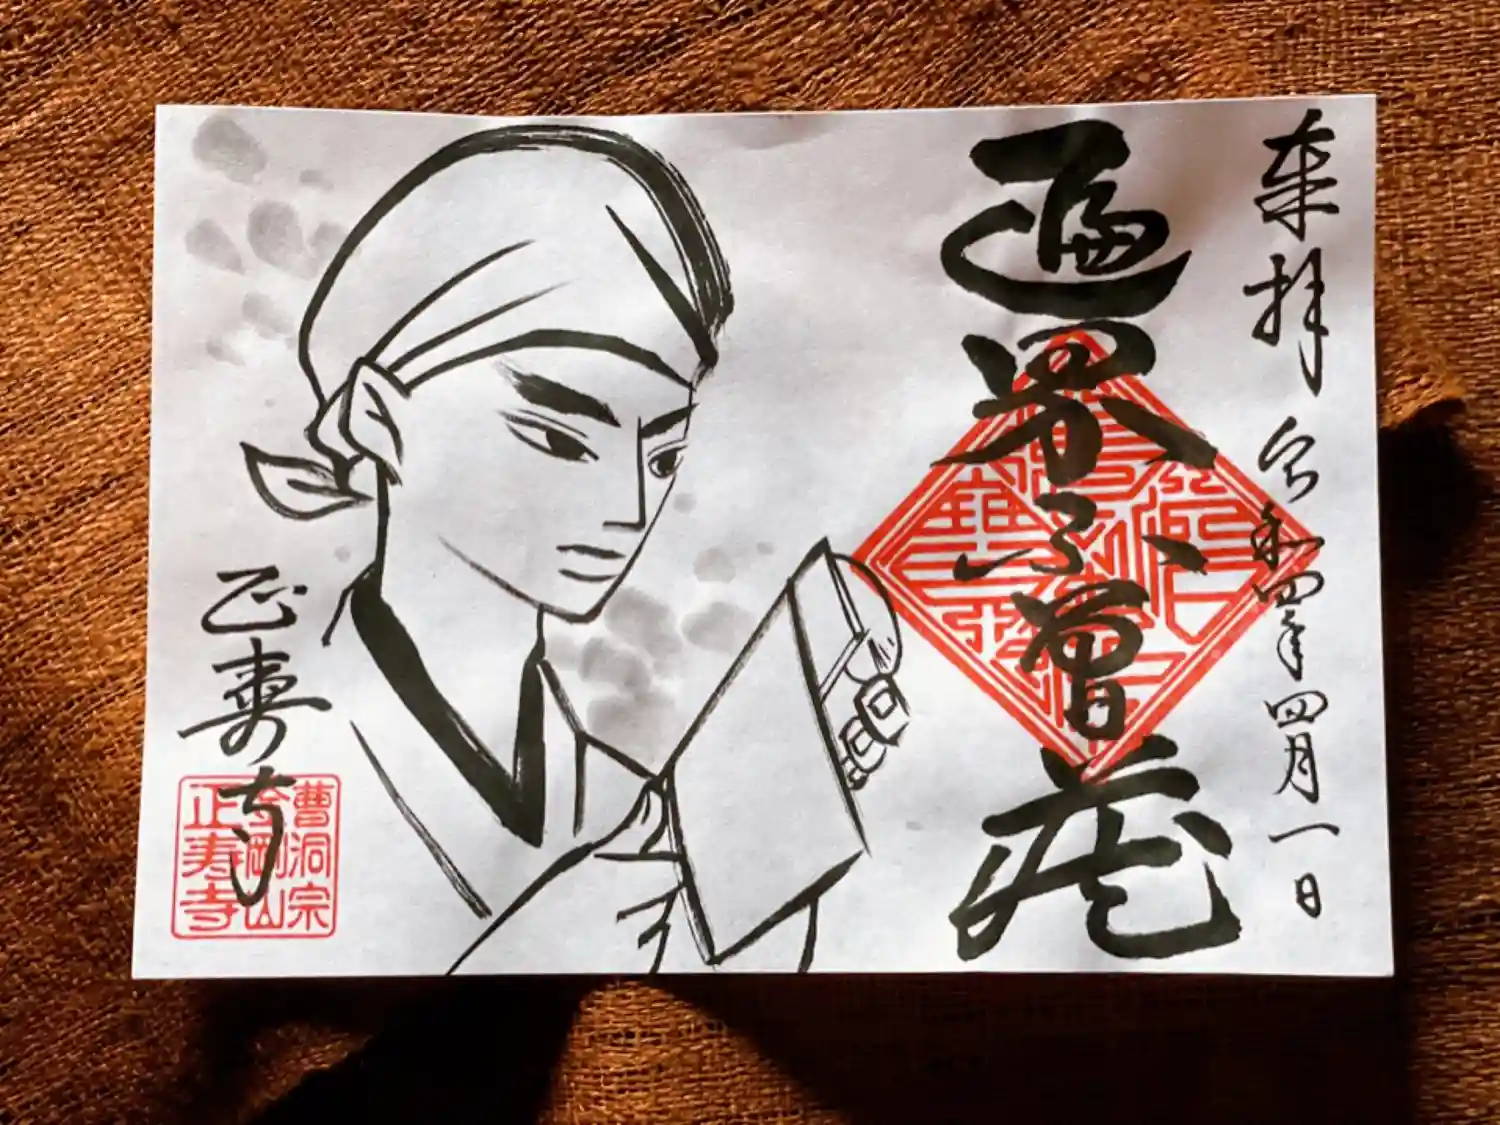 奉拝
令和四年四月一日
遍界不曽蔵
正寿寺
曹洞宗
正寿寺